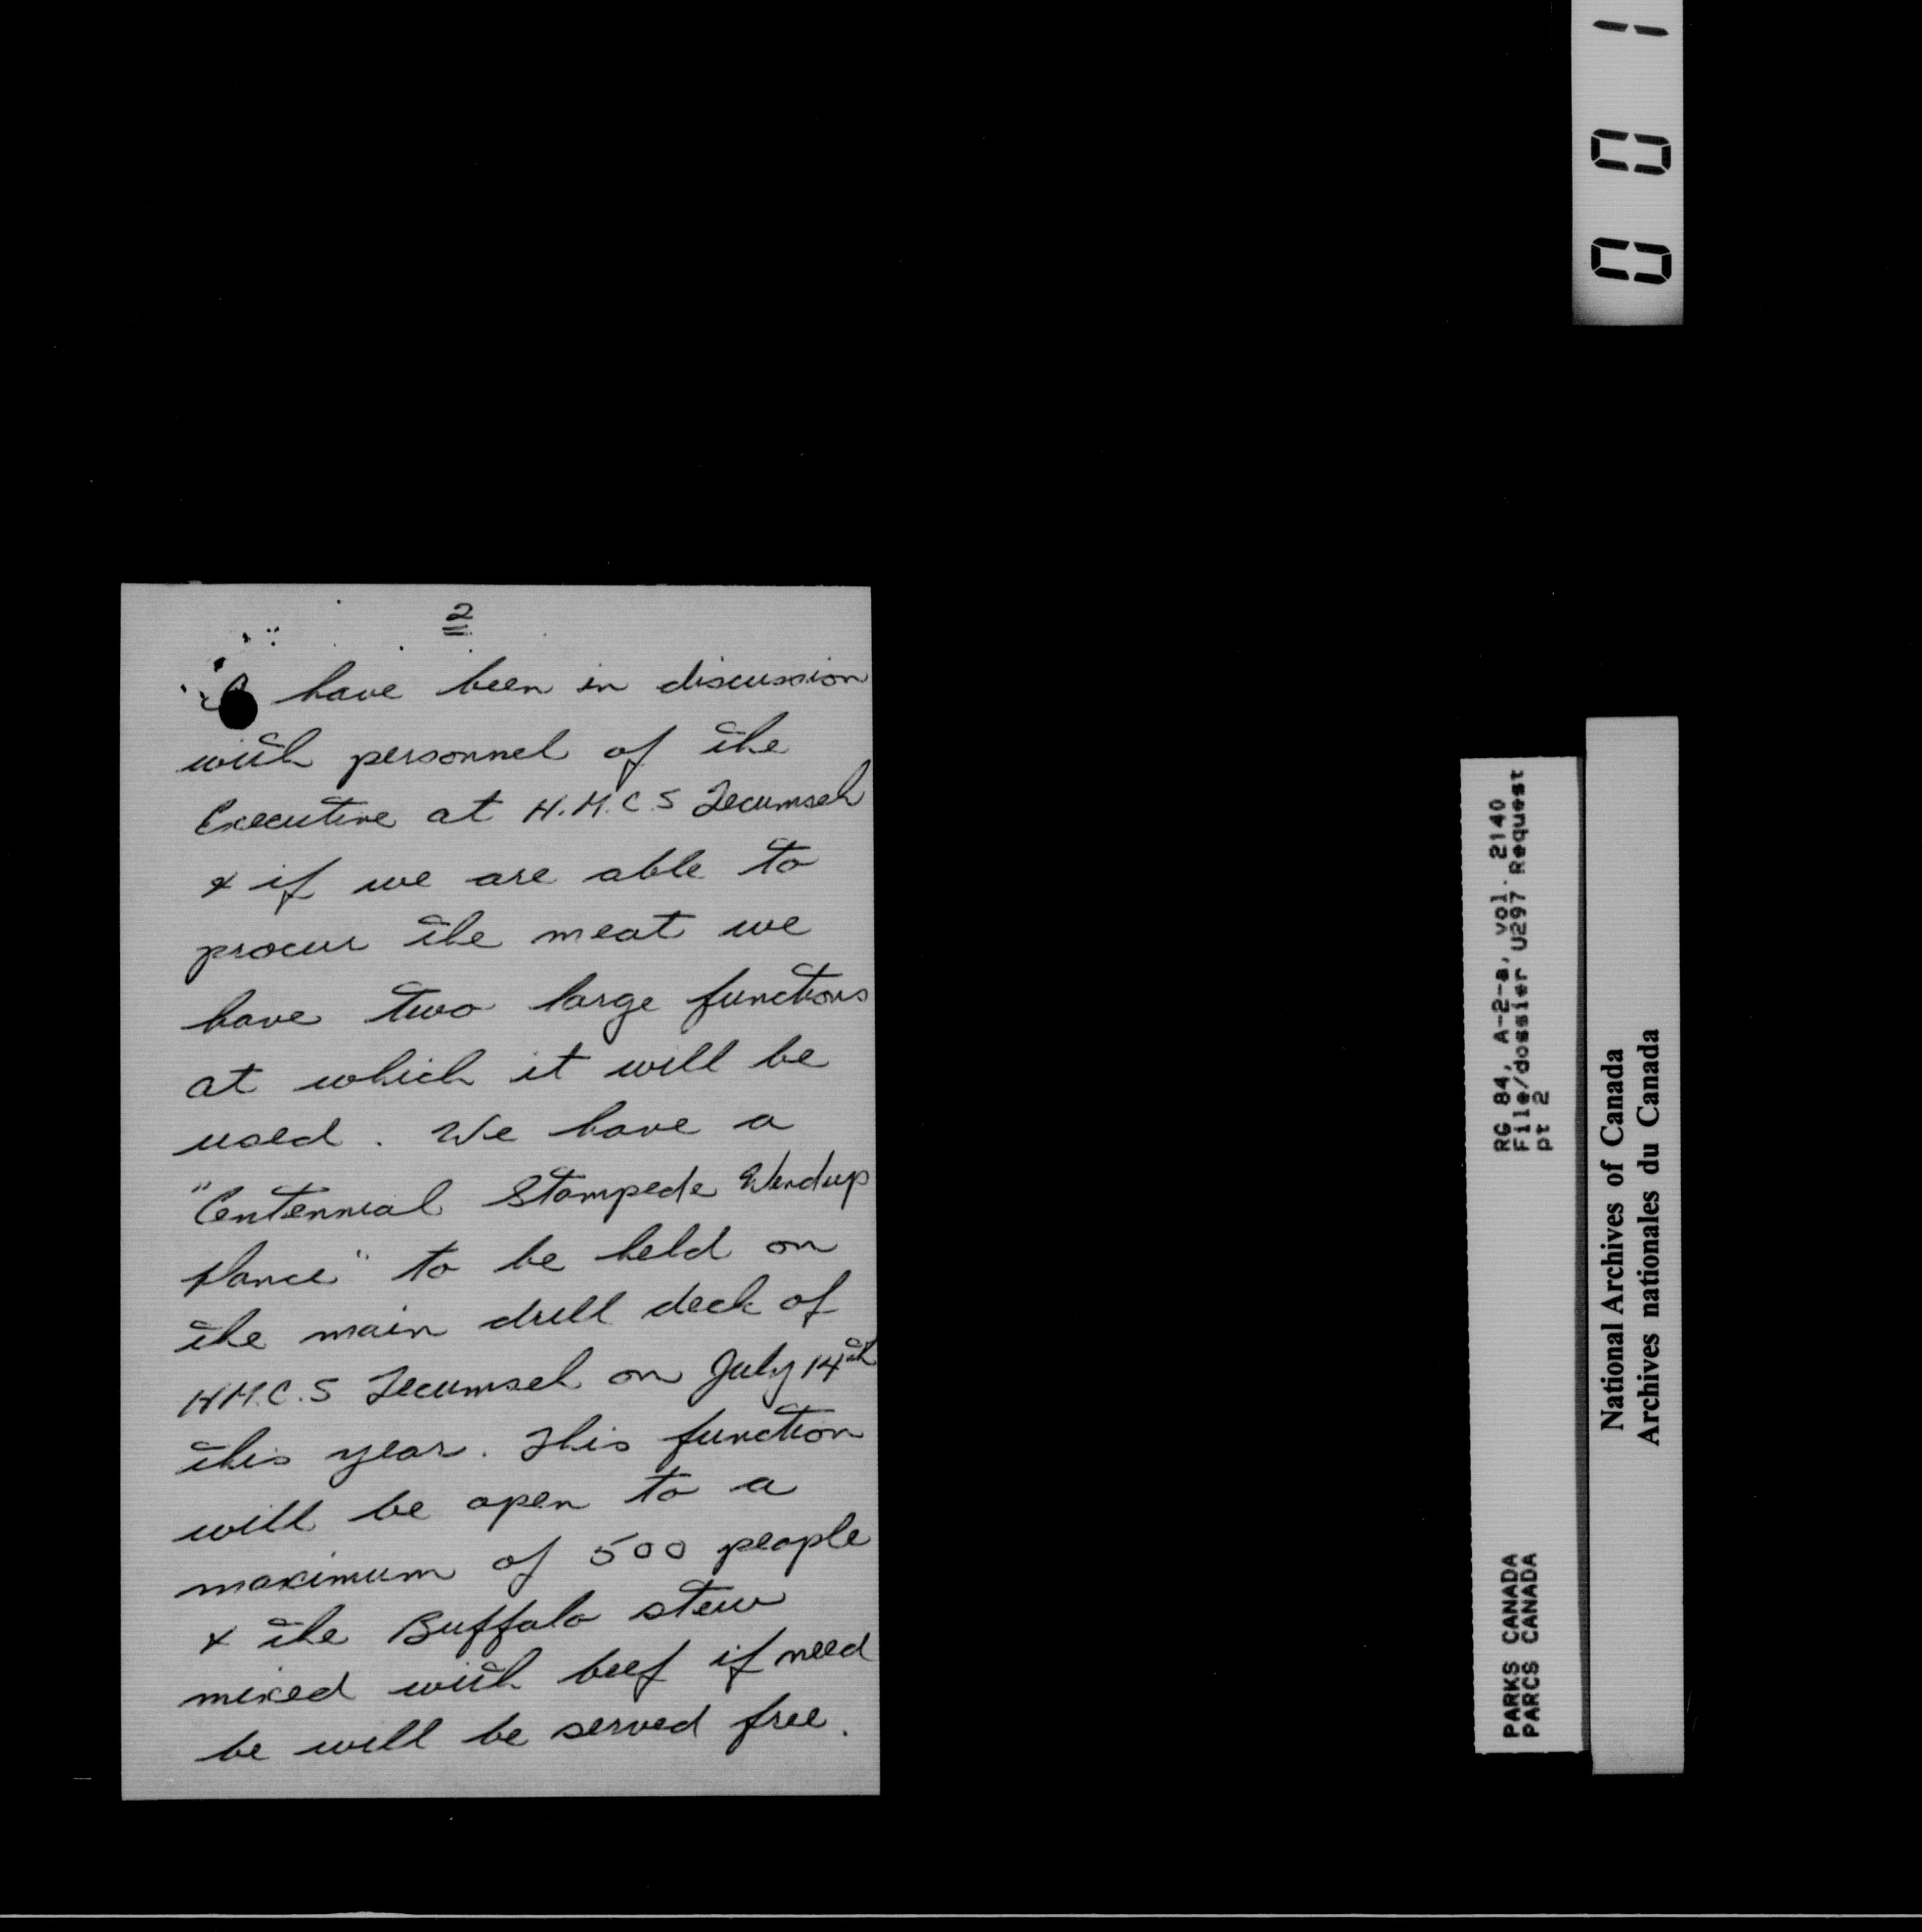 2
I have been in discussion
with personnel of the
Executive at H.M.C.S Tecumseh
& if we are able to
procur the meat we
have two large functions
at which it will be
used. We have a
"Centennial Stampede Windup
Dance" to be held on
the main drill deck of
H.M.C.S Tecumseh on July 14th
this year. This function
will be open to a
maximum of 500 people
& the Buffalo stew
mixed with beef if need
be will be served free.
001
RG 84, A-2-a, vol. 2140
File/dossier U297 Request
pt 2
PARKS CANADA
PARCS CANADA
National Archives of Canada
Archives nationales du Canada